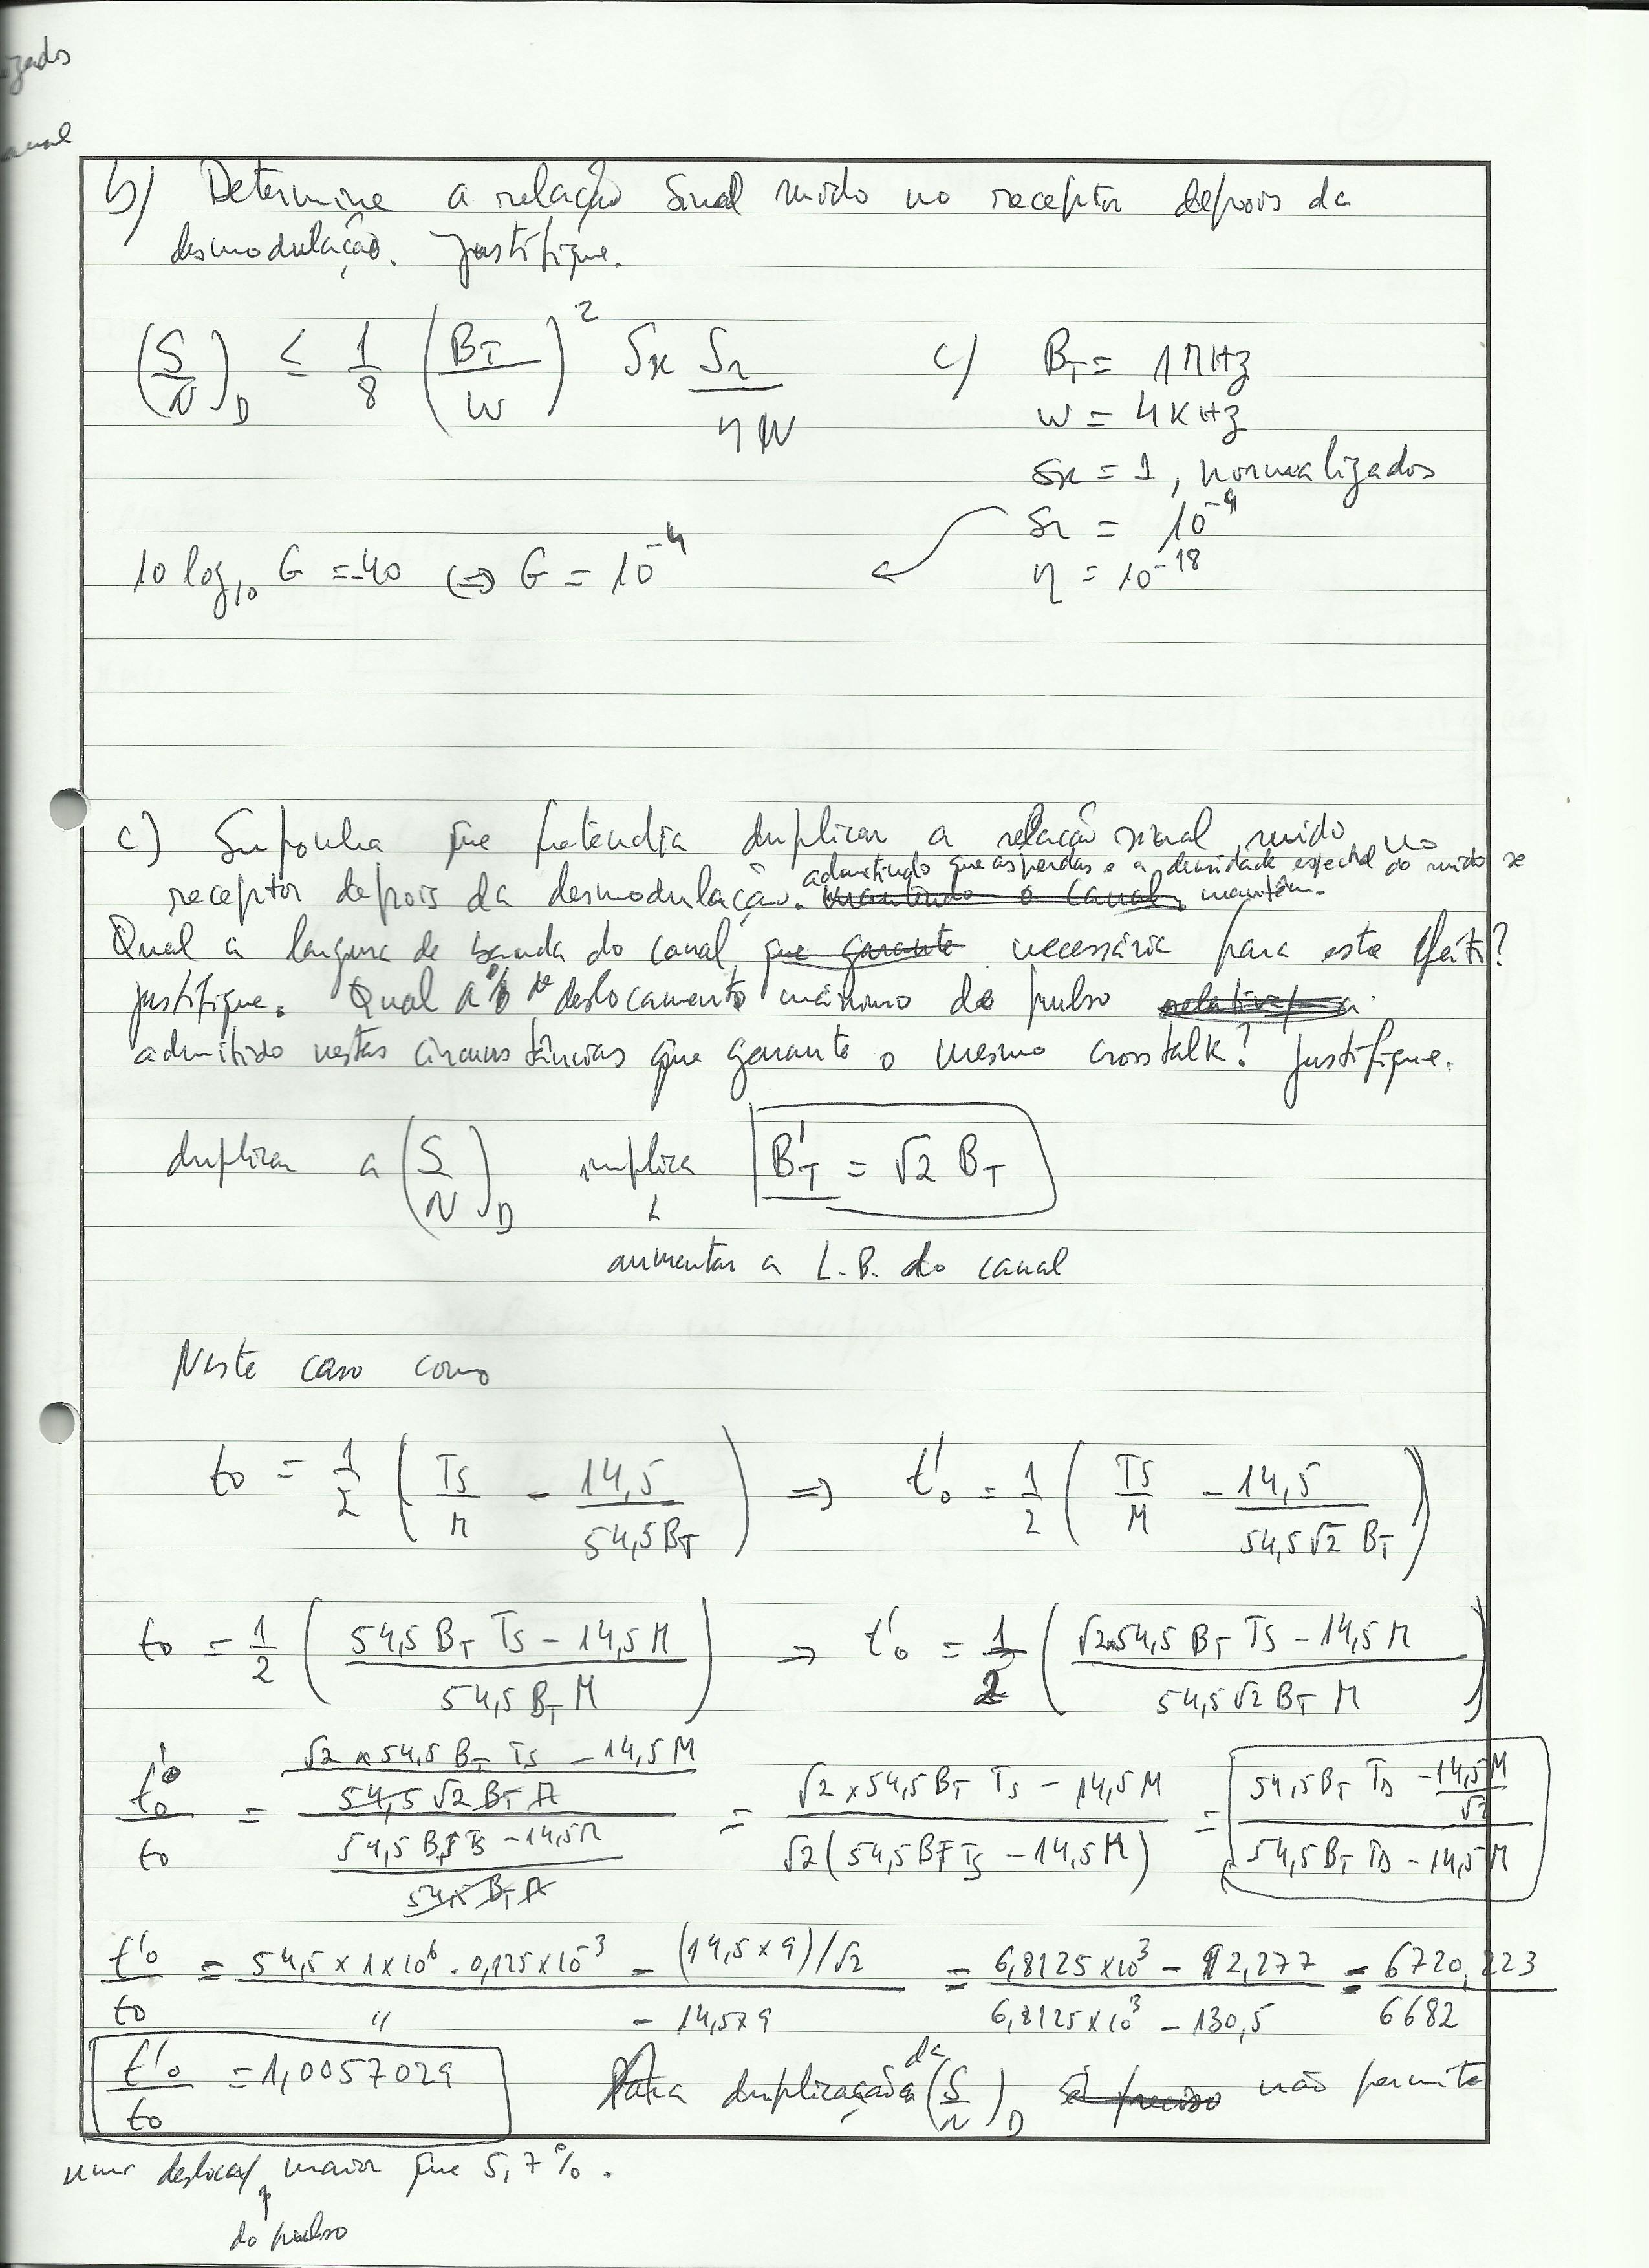 izados
anal
b) Determine a relação sinal ruido no receptor depois da
desmodulação. Justifique.
(S/N)_D ≤ 1/8 (B_T/W)^2 Sx Sr/ηW
c) B_T = 1MHz
W = 4KHz
Sx = 1, normalizados
Sr = 10^-4
η = 10^-18
10 log_10 G = -40 ⇔ G = 10^-4
c) Suponha que pretendia duplicar a relação sinal ruido no
receptor depois da desmodulação. admitindo que as perdas e a densidade espectral do ruido se
mantendo o canal, mantêm.
Qual a largura de banda do canal que garante necessária para este efeito?
Justifique. Qual a % de deslocamento máximo do pulso
admitido nestas circunstâncias que garante o mesmo crosstalk? Justifique.
duplicar a (S/N)_D implica B'_T = √2 B_T
aumentar a L.B. do canal
Neste caso como
to = 1/2 (Ts/M - 14,5/54,5B_T) ⇒ t'o = 1/2 (Ts/M - 14,5/54,5√2 B_T)
to = 1/2 (54,5 B_T Ts - 14,5M / 54,5 B_T M) ⇒ t'o = 1/2 (√2×54,5 B_T Ts - 14,5M / 54,5√2 B_T M)
t'o/to = (√2 × 54,5 B_T Ts - 14,5M / 54,5 √2 B_T M) / (54,5 B_T Ts - 14,5M / 54,5 B_T M) = √2 × 54,5 B_T Ts - 14,5M / √2 (54,5 B_T Ts - 14,5M) = 54,5 B_T Ts - 14,5M/√2 / 54,5 B_T Ts - 14,5M
t'o/to = 54,5 × 1×10^6 . 0,125×10^-3 - (14,5 × 9)/√2 / " - 14,5×9 = 6,8125×10^3 - 92,277 / 6,8125×10^3 - 130,5 = 6720,223 / 6682
t'o/to = 1,0057029 duplicação da (S/N)_D é preciso não permite
um deslocaḿ maior que 5,7%.
do pulso